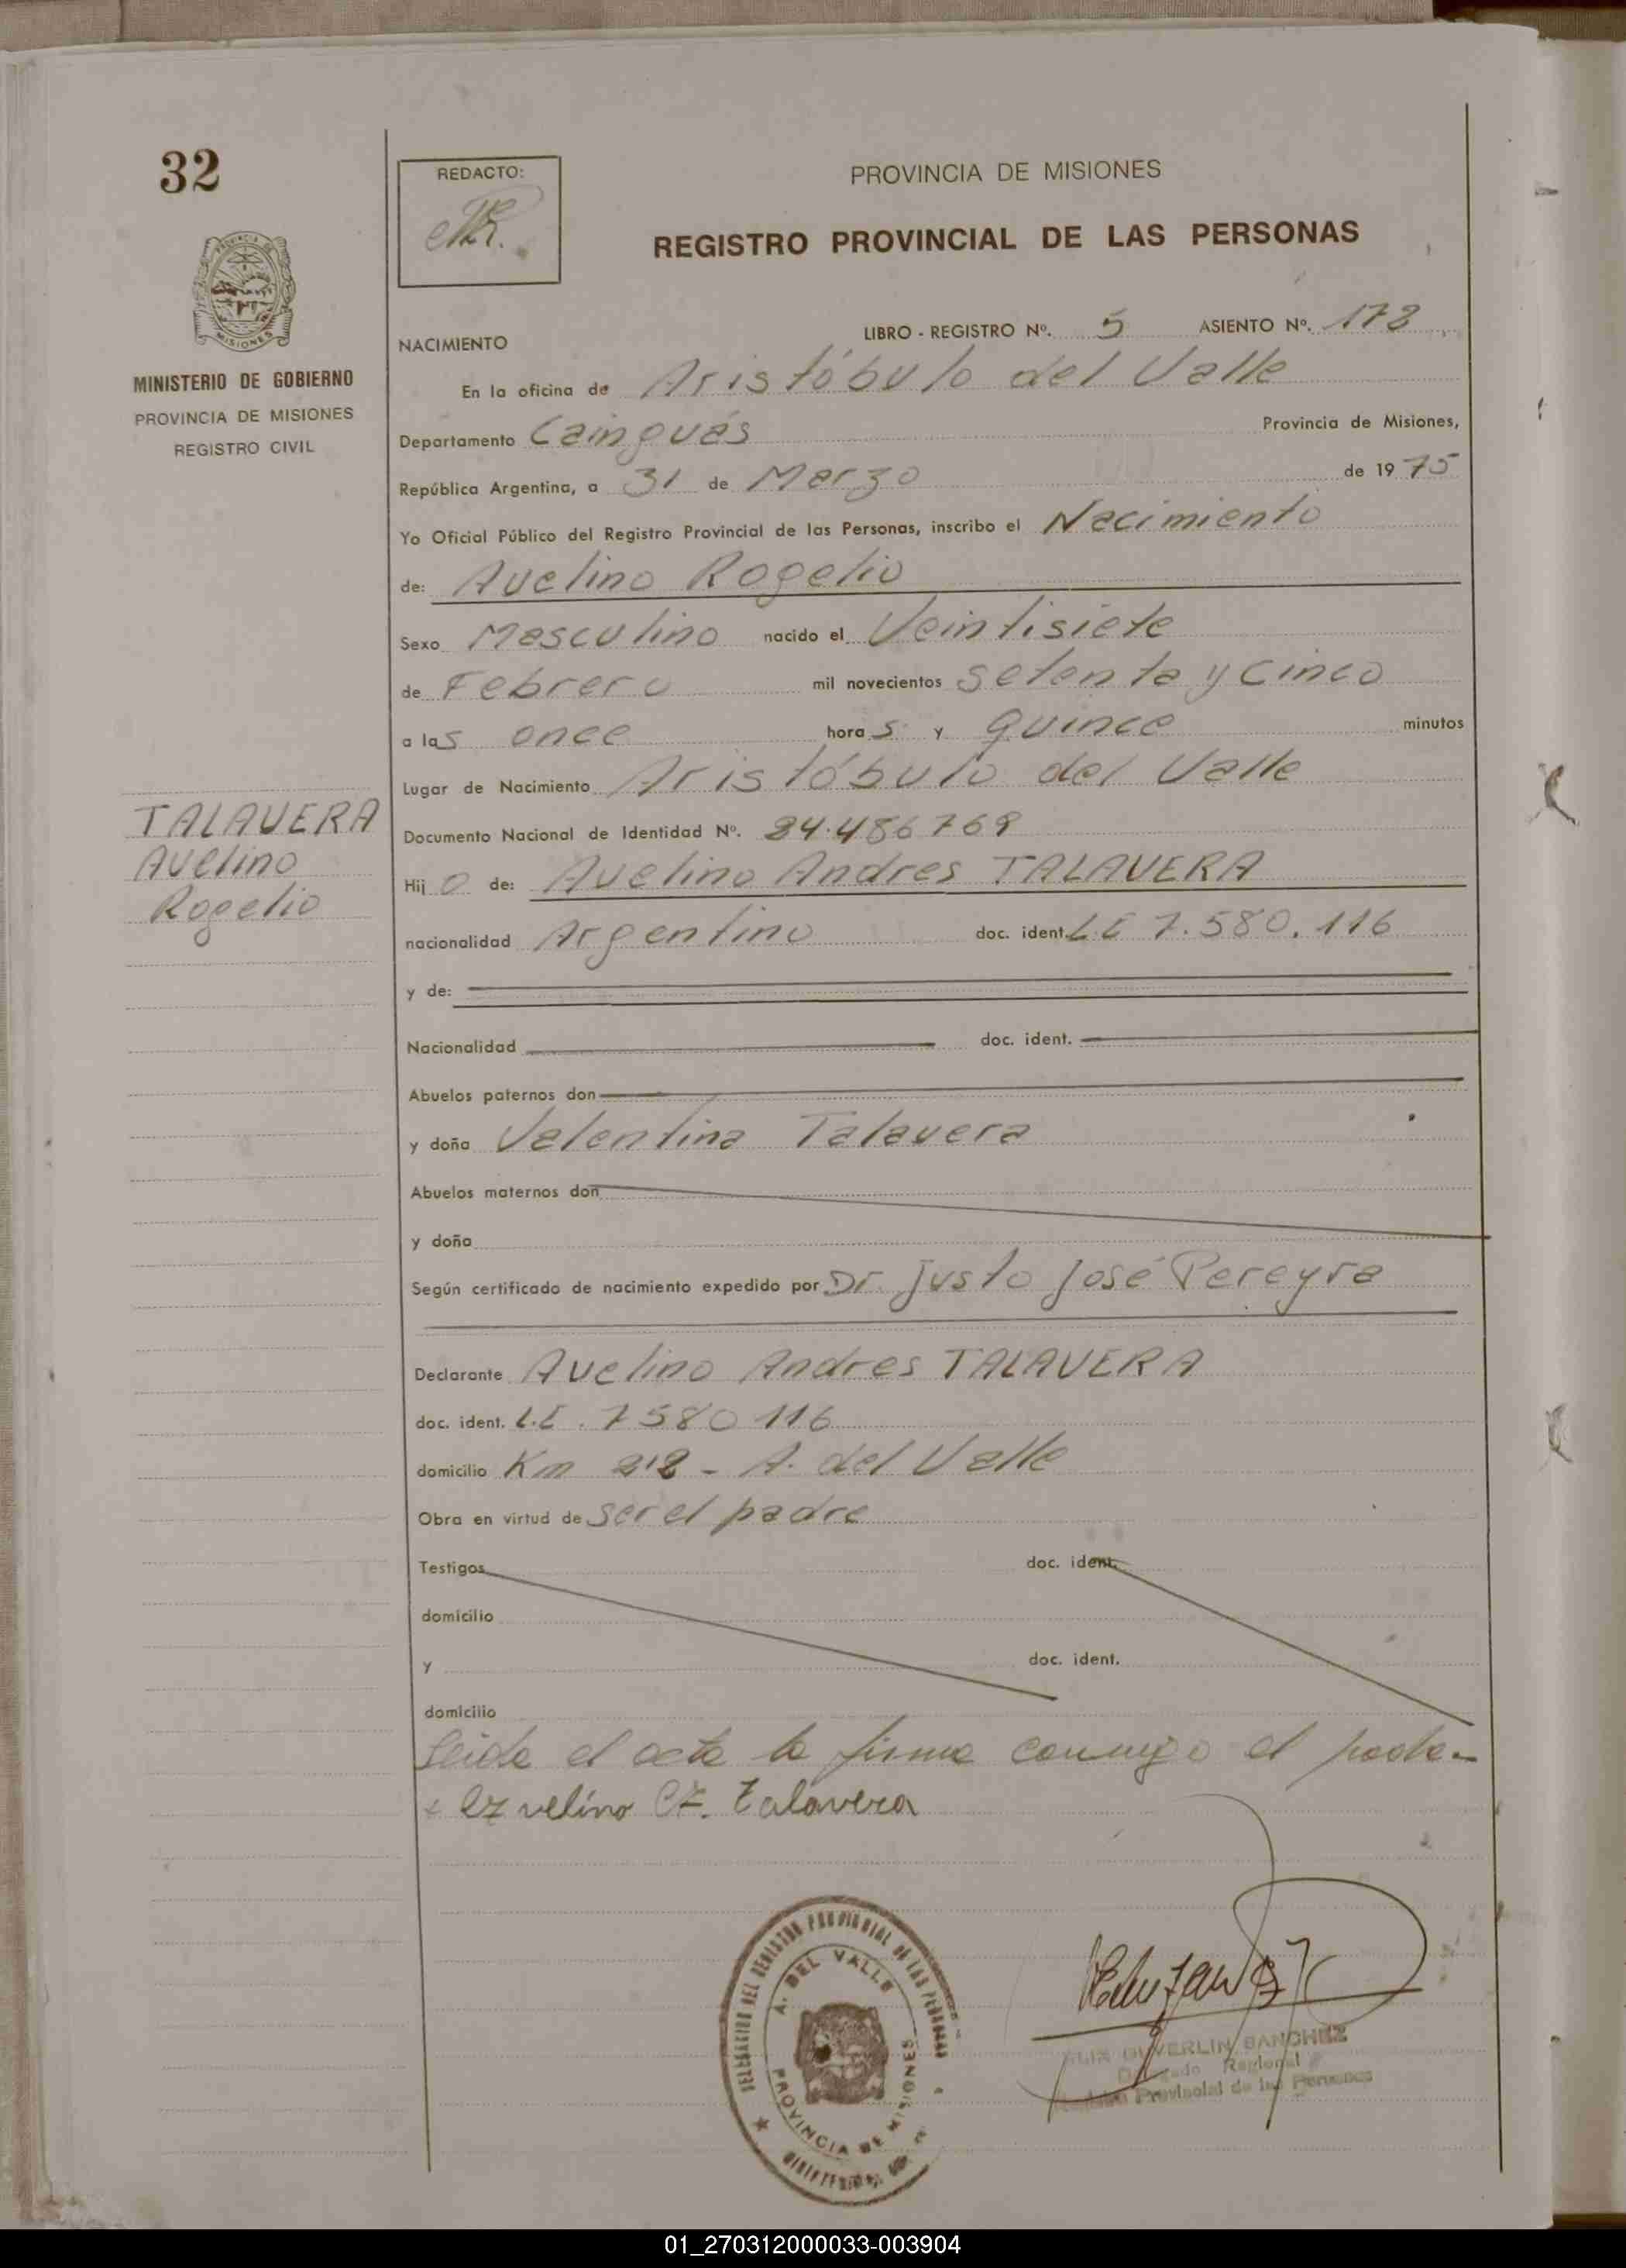 32
REDACTO:
PROVINCIA DE MISIONES
REGISTRO PROVINCIAL DE LAS PERSONAS
MINISTERIO DE GOBIERNO
PROVINCIA DE MISIONES
REGISTRO CIVIL
LIBRO - REGISTRO Nº. 5 ASIENTO Nº. 178
NACIMIENTO
En la oficina de Aristóbulo del Valle
Departamento Cainguás Provincia de Misiones,
República Argentina, a 31 de Marzo de 1975
Yo Oficial Público del Registro Provincial de las Personas, inscribo el Nacimiento
de: Avelino Rogelio
Sexo Masculino nacido el Veintisiete
de Febrero mil novecientos setenta y cinco
a las once horas y quince minutos
Lugar de Nacimiento Aristóbulo del Valle
TALAVERA
Avelino
Rogelio
Documento Nacional de Identidad Nº. 24.486768
Hijo de: Avelino Andres TALAVERA
nacionalidad Argentino doc. ident. L.E 7.580.116
y de:
Nacionalidad doc. ident.
Abuelos paternos don
y doña Valentina Talavera
Abuelos maternos don
y doña
Según certificado de nacimiento expedido por Dr. Justo José Pereyra
Declarante Avelino Andres TALAVERA
doc. ident. L.E. 7580116
domicilio Km 212 - A. del Valle
Obra en virtud de ser el padre
Testigos doc. ident.
domicilio
y doc. ident.
domicilio
Leida el acta la firma conmigo el padre
Avelino A. Talavera
DELEGACION DEL REGISTRO PROVINCIAL DE LAS PERSONAS
A. DEL VALLE
PROVINCIA DE MISIONES
SANCHEZ
Delegado Regional
Provincial de las Personas
01_270312000033-003904